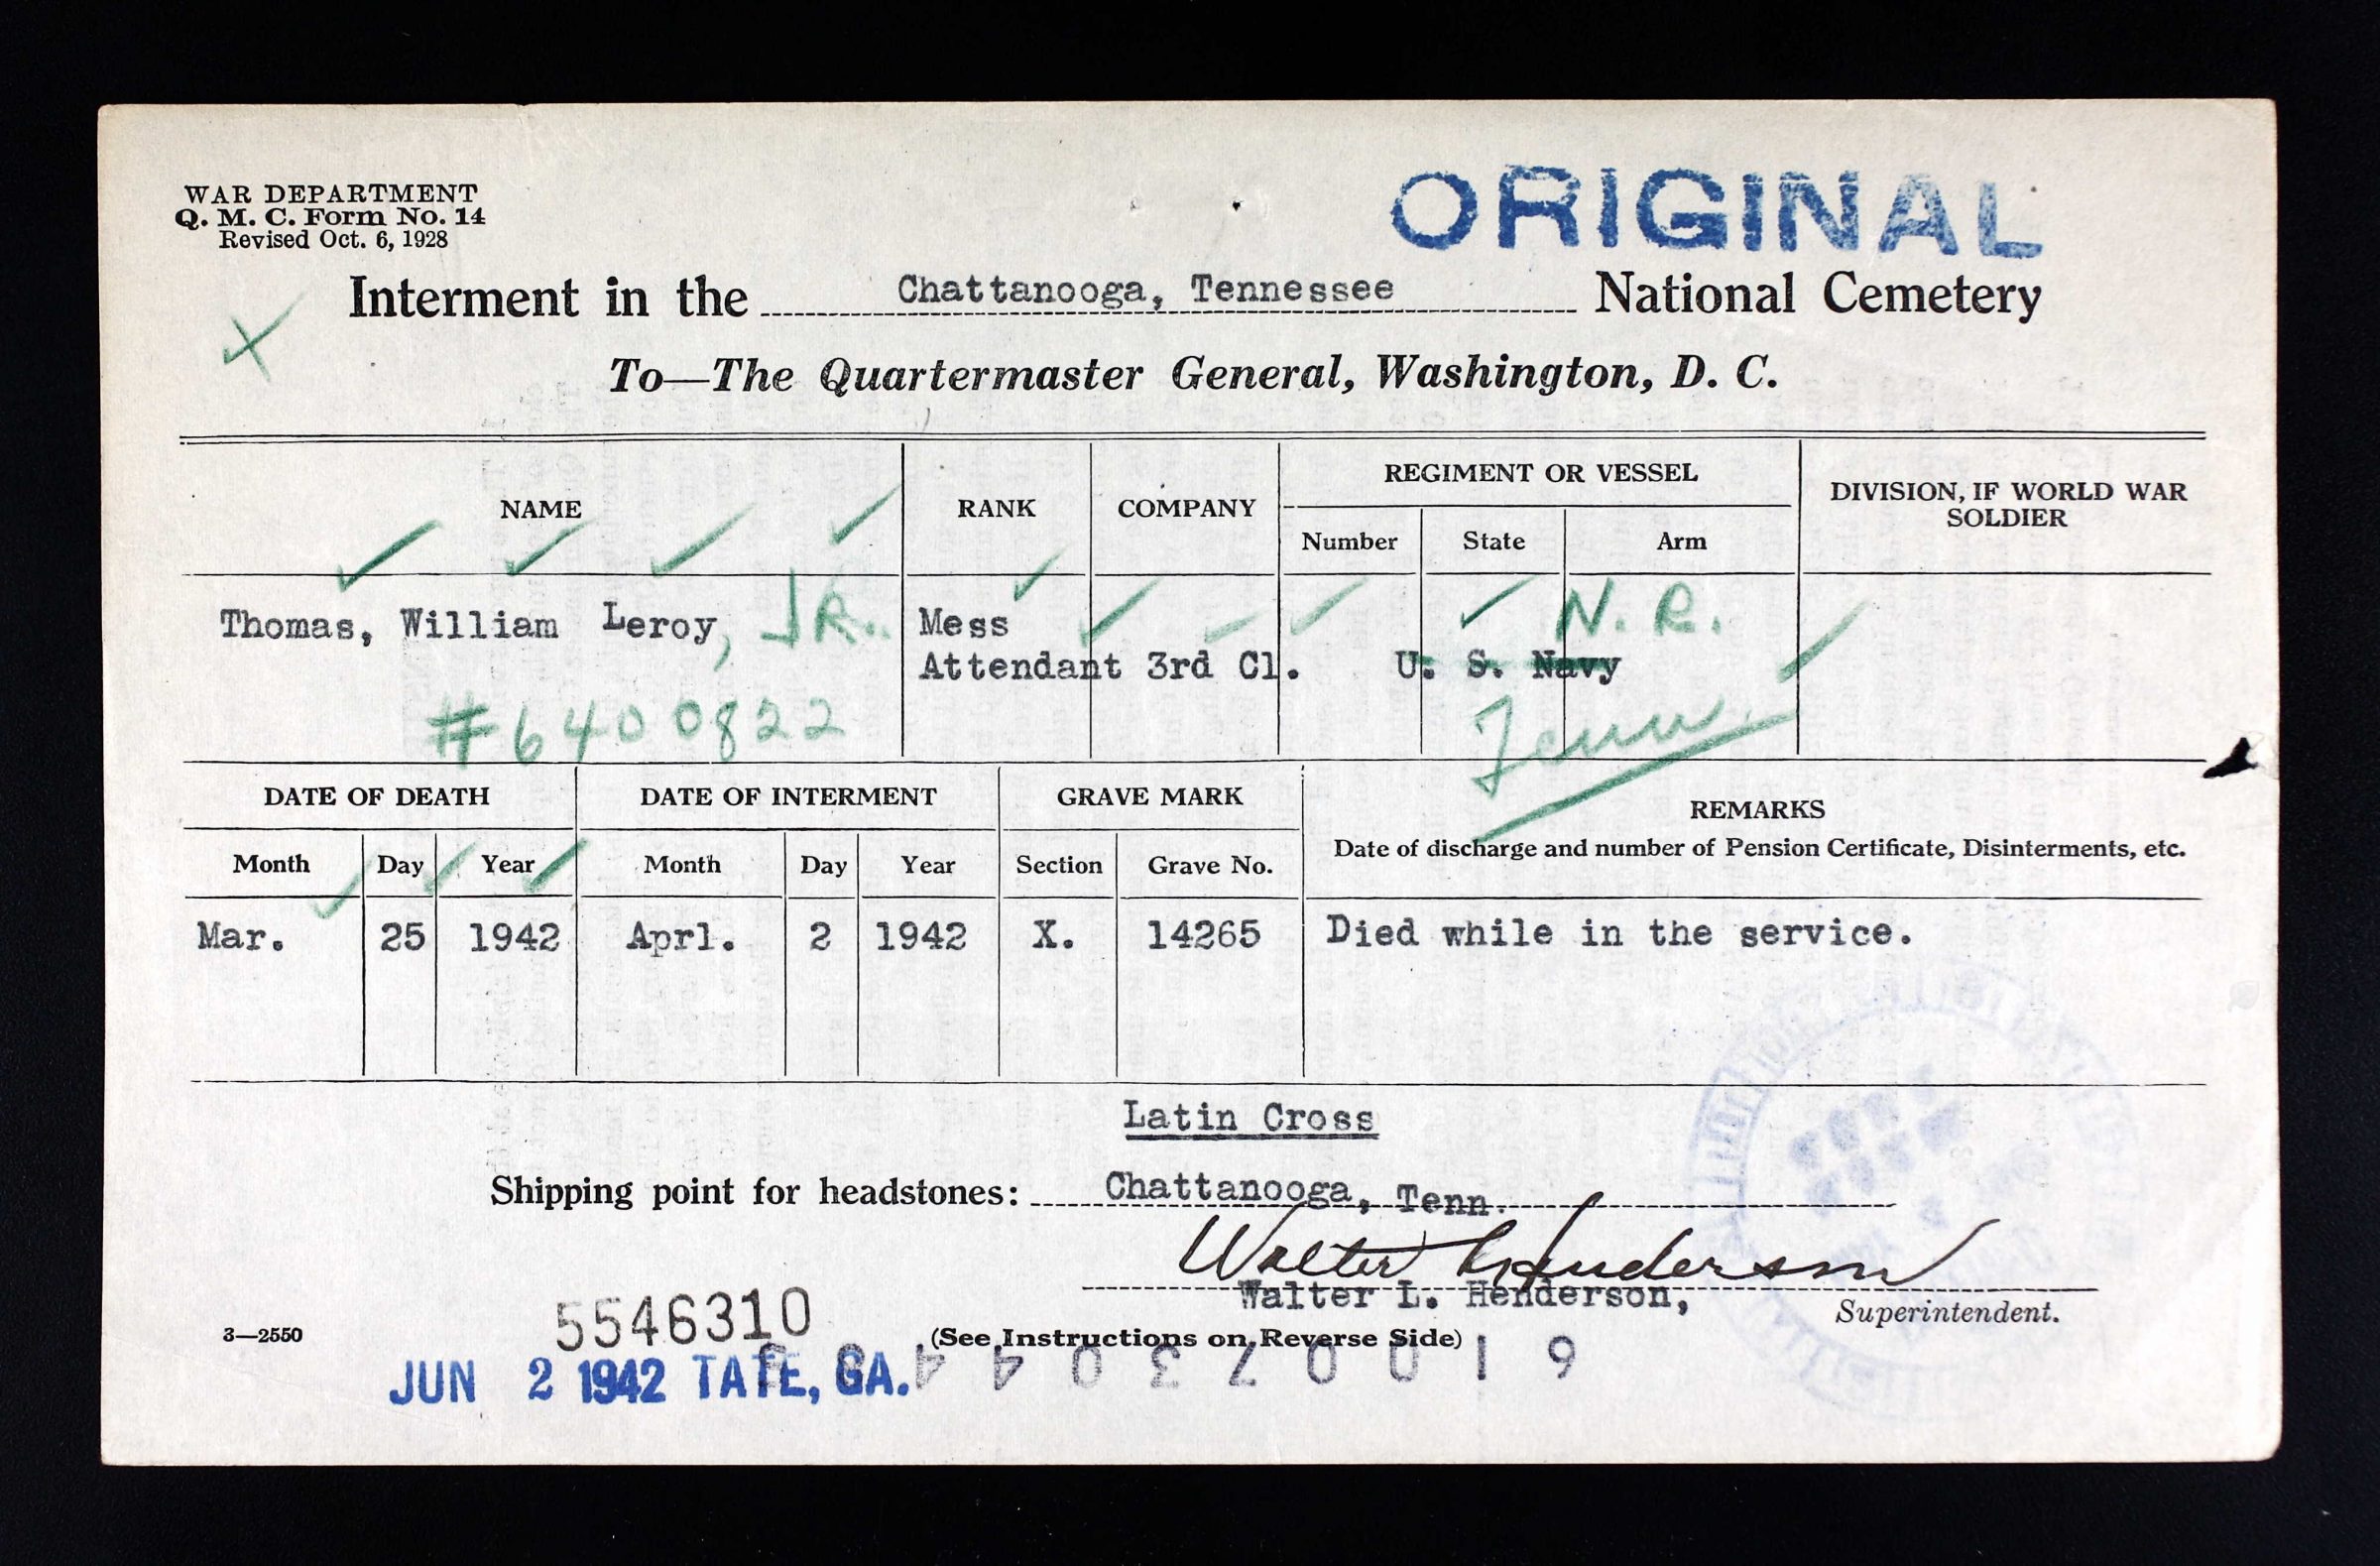 WAR DEPARTMENT
Q. M. C. Form No. 14
Revised Oct. 6, 1928
ORIGINAL
Interment in the Chattanooga, Tennessee National Cemetery
To—The Quartermaster General, Washington, D. C.
NAME
RANK
COMPANY
REGIMENT OR VESSEL
Number
State
Arm
DIVISION, IF WORLD WAR
SOLDIER
Thomas, William Leroy, JR.
#6400822
Mess
Attendant 3rd Cl.
N. R.
U. S. Navy
Tenn.
DATE OF DEATH
Month
Day
Year
DATE OF INTERMENT
Month
Day
Year
GRAVE MARK
Section
Grave No.
REMARKS
Date of discharge and number of Pension Certificate, Disinterments, etc.
Mar. 25 1942 Aprl. 2 1942 X. 14265 Died while in the service.
Latin Cross
Shipping point for headstones: Chattanooga, Tenn.
Walter L. Henderson
Walter L. Henderson,
Superintendent.
3—2550
5546310
(See Instructions on Reverse Side)
JUN 2 1942 TATE, GA.